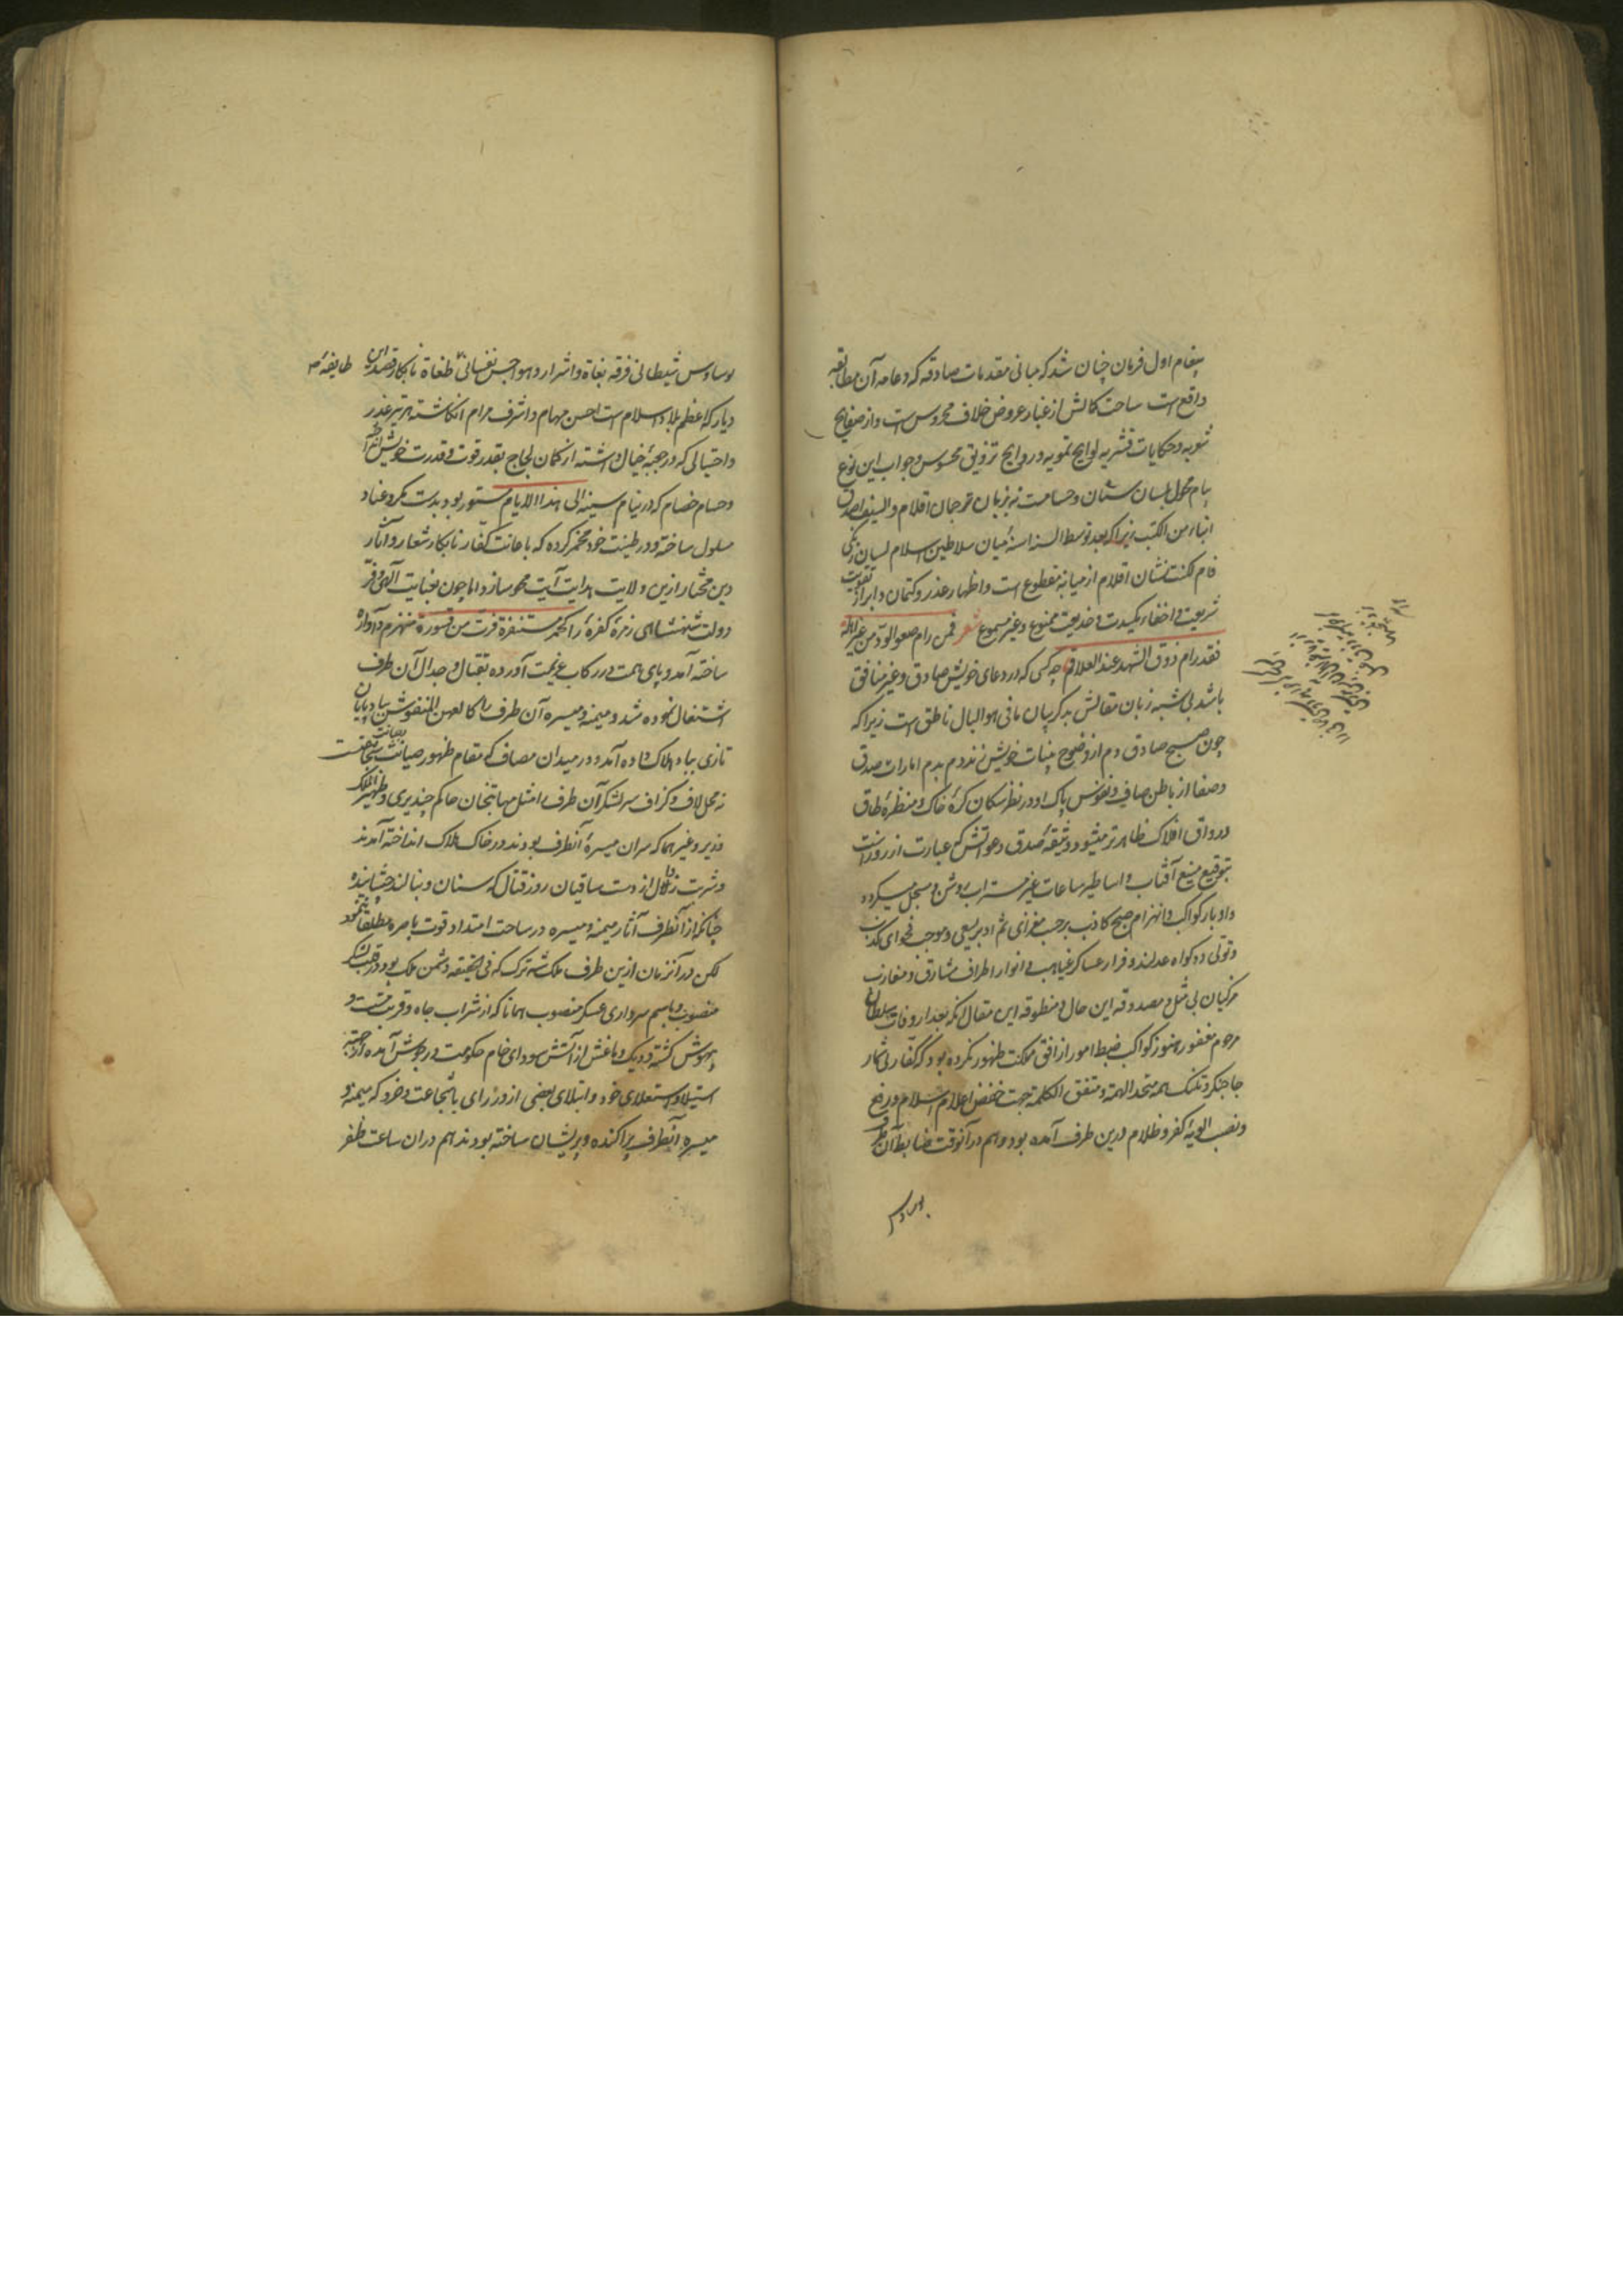 پیغام اول فرمان چنان شد که مبانی مقدمات صادقه که دعامه آن مطابقه
واقع است ساحت کمالش از غبار عروض خلاف محروس است و از صفایح
شوبه و حکایات قشریه لوایح تمویه و روایح تزویق محسوس و جواب این نوع
پیام محول بلسان سنان و حسامست نه بزبان ترجمان اقلام و السیف اصدق
انباء من الکتب زیرا که بعد توسط السنه اسنهٔ میان سلاطین اسلام لسان زنگی
فام لکنت نشان اقلام از میانه مقطوع است و اظهار عذر و کتمان و ابراز تقویت
شریعت و اخفاء مکیدت و خدیعت ممنوع و غیر مسموع شعر فمن رام صفو الود من غیر اهله
فقد رام ذوق الشهد عند العلاقم چه کسی که در دعای خویش صادق و غیر منافق
باشد بی شبه زبان مقالش بذکر بیان ما فی هو البال ناطق است زیرا که
چون صبح صادق دم از وضوح بینات خویش زند دم بدم امارات صدق
و صفا از باطن صافی و نفوس پاک او در نظر سکان کرهٔ خاک و منظرهٔ طاق
و رواق افلاک ظاهرتر میشود و وثیقهٔ صدق دعوتش که عبارت از روز است
بتوقیع منیع آفتاب و اساطیر ساعات غیر مستراب روشن و مسجل میگردد
و ادبار کواکب و انهزام صبح کاذب برحسب مغزای ثم ادبر یسعی و موجب فحوای کذب
و تولی دو گواه عدلند و فرار عساکر غیاهب و انوار اطراف مشارق و مغارب
مزکیان بی مثل و مصدوقه این حال و منطوقه این مقال آنکه بعد از وفات سلطان
مرحوم مغفور هنوز کواکب ضبط امور از افق مملکت ظهور نکرده بود که کفار بی شمار
جاجنکر و تلنک همه متحد الهمة و متفق الکلمة جهت خفض اعلام اسلام و رفع
و نصب الویهٔ کفر و ظلام درین طرف آمده بود و هم در آنوقت ضابط آن طرف
بوساوس
بوساوس شیطانی فرقه بغاة و اشرار و هواجس نفسانی طغاة نابکار قصد این طایفهٔ
دیار که اعظم بلاد اسلام است احسن مهام و اشرف مرام انگاشته تیر غدر
و احتیالی که در جعبهٔ خیال داشته از کمان لجاج بقدر قوت و قدرت خویش
و حسام خصام که در نیام سینه الی هذا الایام مستور بود بدست مکر و عناد
مسلول ساخته و در طینت خود مخمر کرده که باعانت کفار نابکار شعار و آثار
دین مختار ازین ولایت هدایت آیت محو سازد اما چون بعنایت الهی و فر
دولت شهنشاهی زمرهٔ کفره را کحمر مستنفرة فرت من قسورة منهزم و آواره
ساخته آمد و پای همت در رکاب عزیمت آورده بقتال و جدال آن طرف
اشتغال نموده شد و میمنه و میسره آن طرف را کالعهن المنفوش بباد پایان
تازی بباد هلاک داده آمد و در میدان مصاف که مقام ظهور صیانت
نه محل لاف و گزاف سرلشکر آن طرف امثل مهابتخان حاکم چندیری و ظهیر الملک
وزیر و غیرهما که سران میسرهٔ آنطرف بودند در خاک هلاک انداخته آمدند
و شربت زوال از دست ساقیان روز قتال که سنان و نبالند چشانیده
چنانکه از آنطرف آثار میمنه و میسره در ساحت امتداد قوت باصره مطلقا ننمود
لکن در آن زمان ازین طرف ملک شه ترک که فی الحقیقه دشمن ملک بود و در قلب لشکر
منصوب و باسم سرداری عسکر منصوب همانا که از شراب جاه و قربت مست و
بیهوش گشته و دیک دماغش از آتش سودای خام حکومت در جوش آمده از جهته
استیلا و استعلای خود و ابتلای بعضی از وزرای باشجاعت و خرد که میمنه و
میسره آنطرف پراکنده و پریشان ساخته بودند هم در آن ساعت ظفر